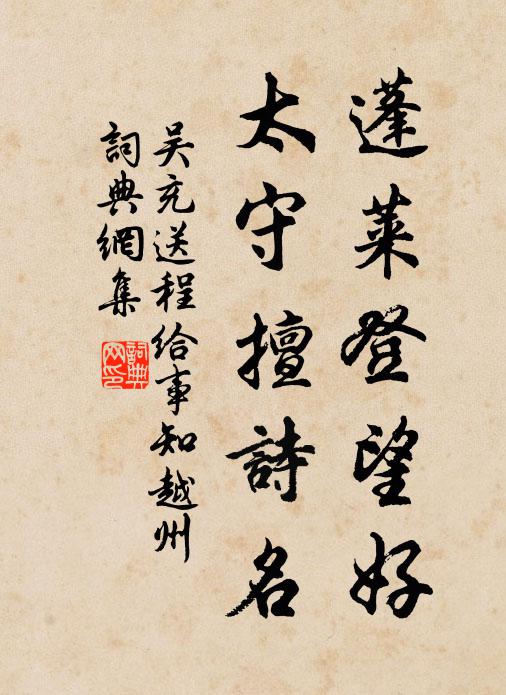 蓬萊登望好
太守擅詩名
吳充送程給事知越州
詞典網集
詞典
网印